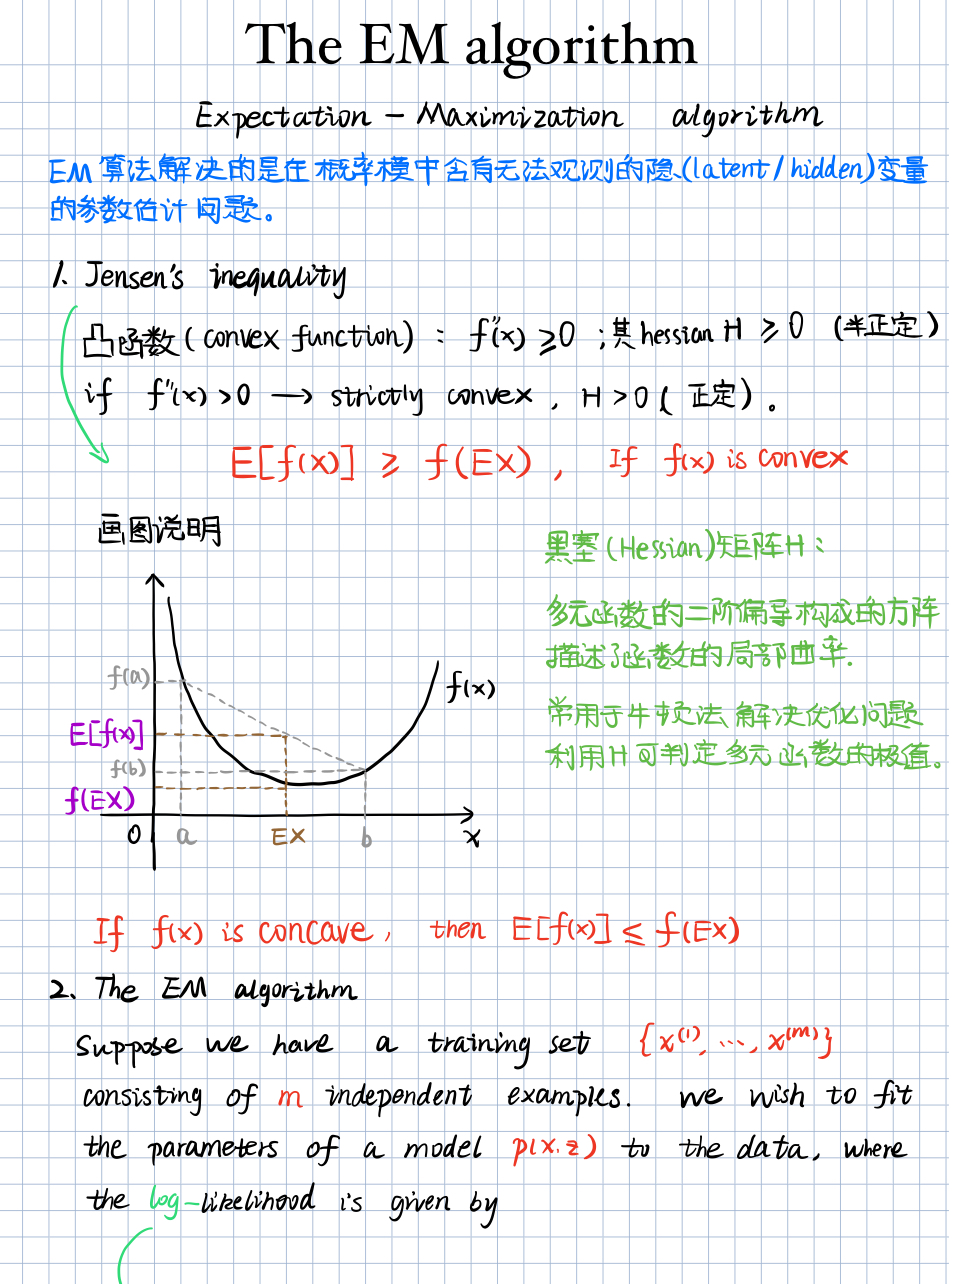 The EM algorithm
Expectation - Maximization algorithm
EM 算法解决的是在概率模中含有无法观测的隐(latent/hidden)变量
的参数估计问题。
1. Jensen's inequality
凸函数(convex function): f''(x) ≥ 0 ; 其hessian H ≥ 0 (半正定)
if f''(x) > 0 → strictly convex, H > 0 (正定)。
E[f(x)] ≥ f(EX), If f(x) is convex
画图说明
f(a)
E[f(x)]
f(b)
f(EX)
f(x)
0 a EX b x
黑塞(Hessian)矩阵H:
多元函数的二阶偏导构成的方阵
描述了函数的局部曲率.
常用于牛顿法、解决优化问题
利用H可判定多元函数的极值。
If f(x) is concave, then E[f(x)] ≤ f(EX)
2、The EM algorithm
Suppose we have a training set {x⁽¹⁾, ..., x⁽ᵐ⁾}
consisting of m independent examples. we wish to fit
the parameters of a model p(x.z) to the data, where
the log-likelihood is given by